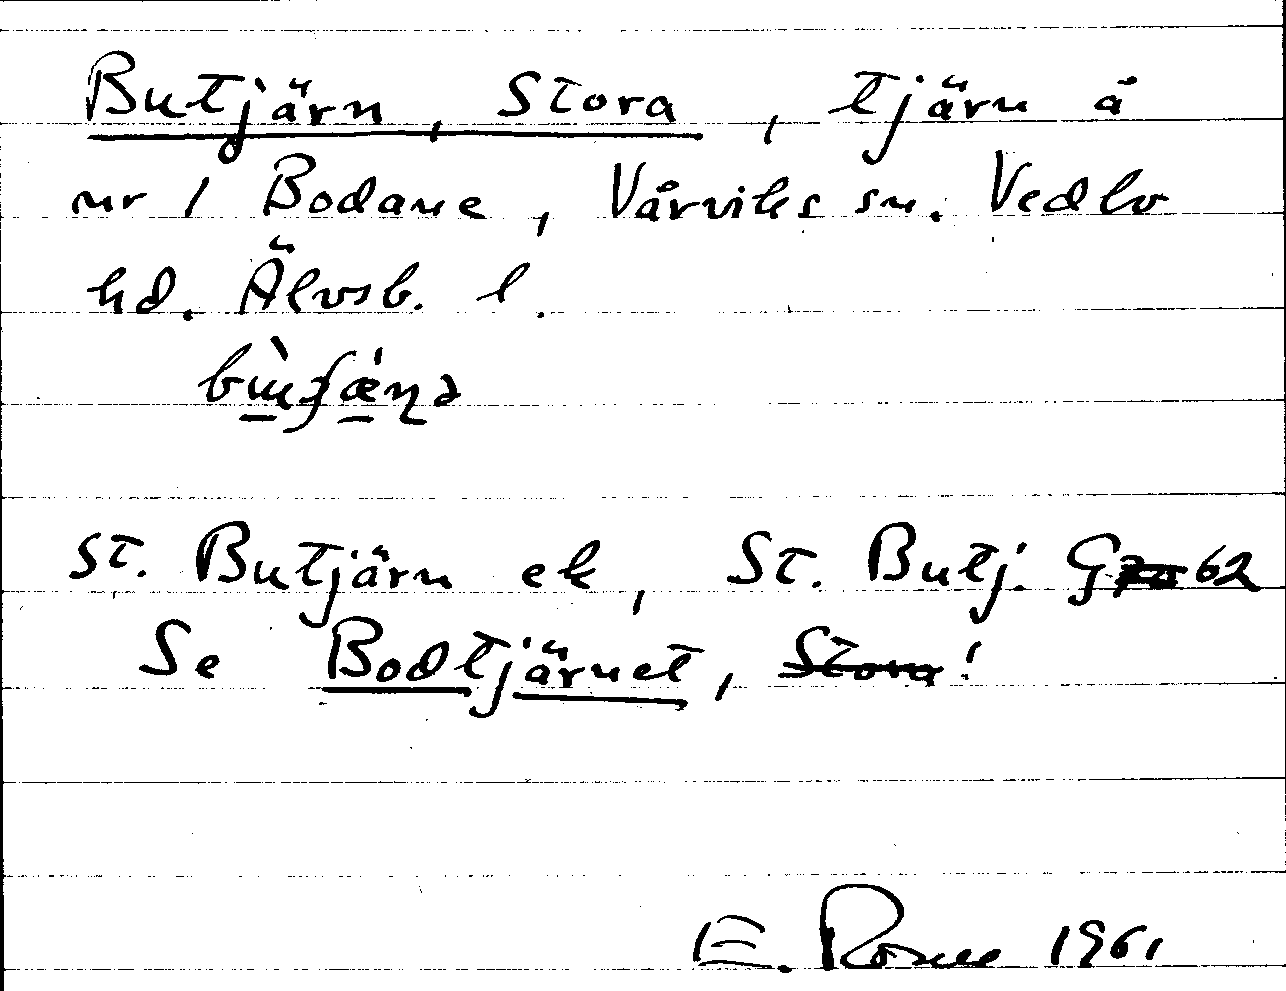 Butjärn, Stora, tjärn å
nr 1 Bodane, Vårviks sn. Vedbo
hd. Älvsb. l.
St. Butjärn ek, St. Butj. G 62
Se Bodtjärnet, Stora!
E. Rosell 1961